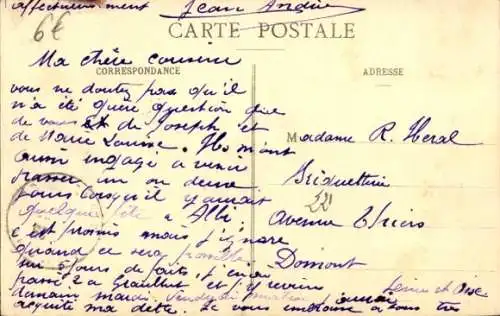 affectueusement Jean André
6€
CARTE POSTALE
CORRESPONDANCE
ADRESSE
Ma chère cousine
vous ne doutez pas qu'il
n'a été guère question que
de vous et de Joseph et
de Marie Louise. Ils m'ont
aussi engagé à venir
passer un ou deux
jours lorsqu'il y aurait
quelque fête à Albi
c'est promis mais j'ignore
quand ce sera possible
sur 5 jours de partis, j'en ai
passé 2 à Graulhet et j'y reviens
demain mardi
acquitté ma dette. Je vous embrasse à tous très
Madame R. Heral
22
Avenue Thiers
Domont
Seine et Oise